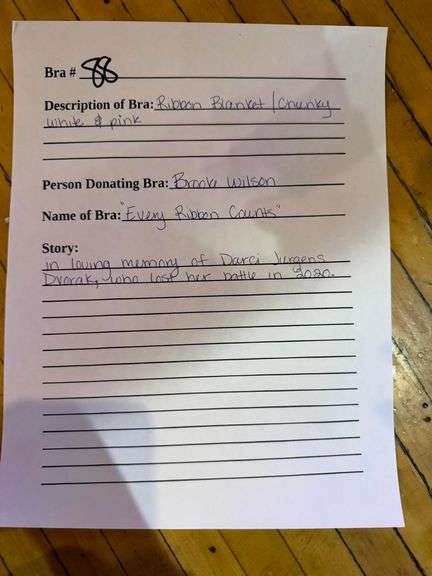 Bra # 88
Description of Bra: Ribbon Blanket / Chunky
white & pink
Person Donating Bra: Brooke Wilson
Name of Bra: "Every Ribbon Counts"
Story:
in loving memory of Darci Jurgens
Dvorak, who lost her battle in 2020.